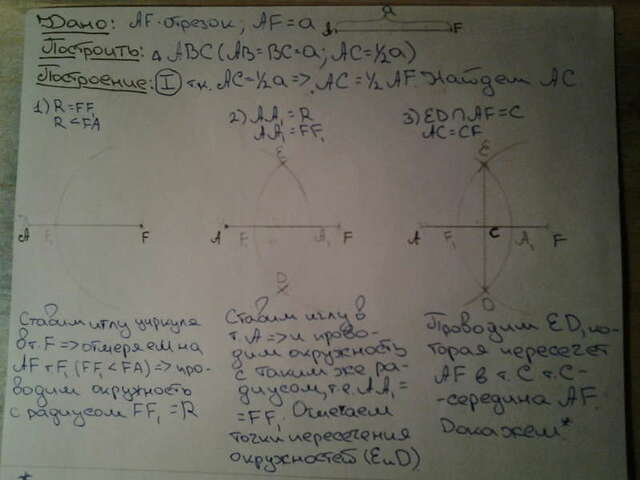 Дано: AF-отрезок; AF=a
a
A F
Построить: △ABC (AB=BC=a; AC=½a)
Построение: I т.к. AC=½a => AC=½AF. Найдем AC
1) R=FF₁
R<FA
A F₁ F
Ставим иглу циркуля
в т.F => отмеряем на
AF т.F₁ (FF₁<FA) => про-
водим окружность
с радиусом FF₁=R
2) AA₁=R
AA₁=FF₁
E
A F₁ A₁ F
D
Ставим иглу в
т.A => и прово-
дим окружность
с таким же ра-
диусом, т.е. AA₁=
=FF₁. Отмечаем
точки пересечения
окружностей (E и D)
3) ED∩AF=C
AC=CF
E
A F₁ C A₁ F
D
Проводим ED, ко-
торая пересечет
AF в т.C т.C-
-середина AF.
Докажем*
*